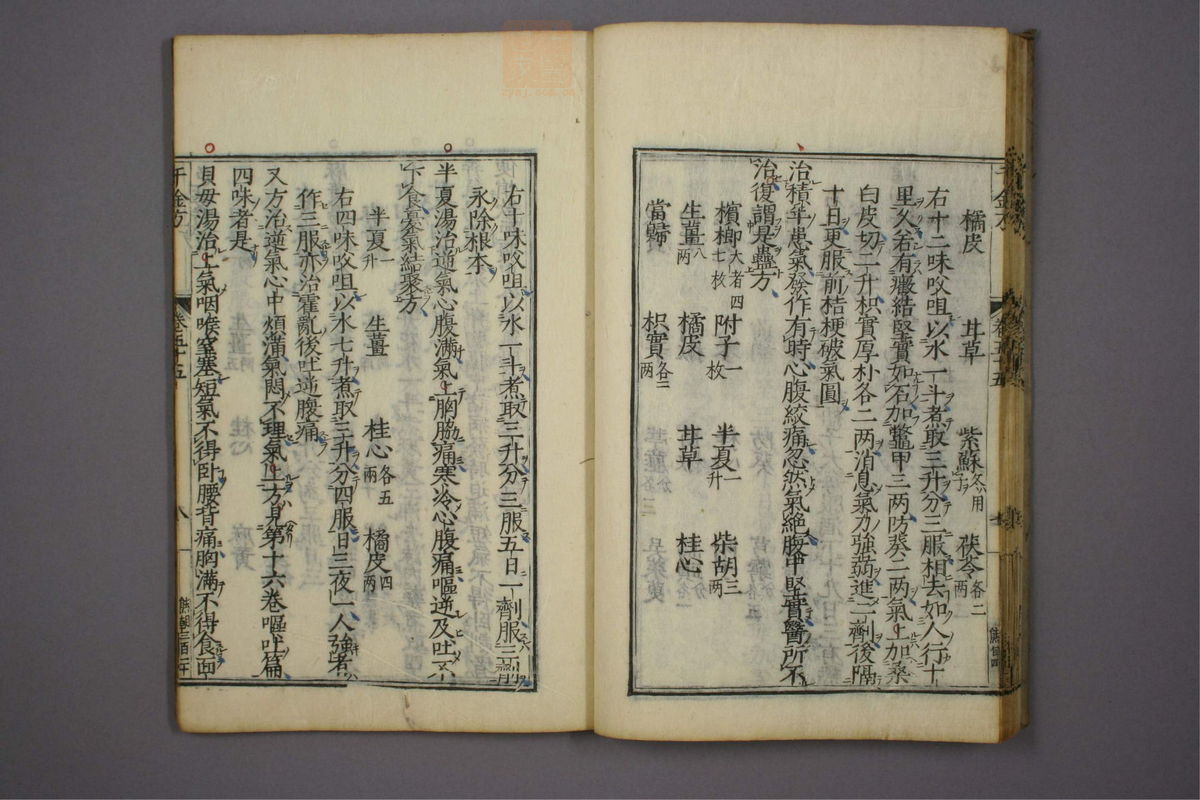 橘皮 甘草 紫蘇冬用子 茯苓各二两
右十二味㕮咀以水一斗煮取三升分三服相去如人行十
里久若有癥結堅實如石加鼈甲三两防葵二两氣上加桑
白皮切二升枳實厚朴各二两消息氣力強弱進二劑後隔
十日更服前桔梗破氣圓
治積年患氣發作有時心腹絞痛忽然氣絶腹中堅實醫所不
治復謂是蠱方
檳榔大者四七枚 附子一枚 半夏一升 柴胡三两
生薑八两 橘皮 甘草 桂心
當歸 枳實各二两
千金方 卷五十五
右十味㕮咀以水一斗煮取三升分三服五日一劑服三劑
永除根本
半夏湯治逆氣心腹滿氣上胸脇痛寒冷心腹痛嘔逆及吐不
下食憂氣結聚方
半夏一升 生薑 桂心各五两 橘皮四两
右四味㕮咀以水七升煮取三升分四服日三夜一人強者
作三服亦治霍亂後吐逆腹痛
又方治逆氣心中煩滿氣悶不理氣上方見第十六卷嘔吐篇
四味者是
貝母湯治上氣咽喉窒塞短氣不得卧腰背痛胸滿不得食面
千金方 卷五十五 八